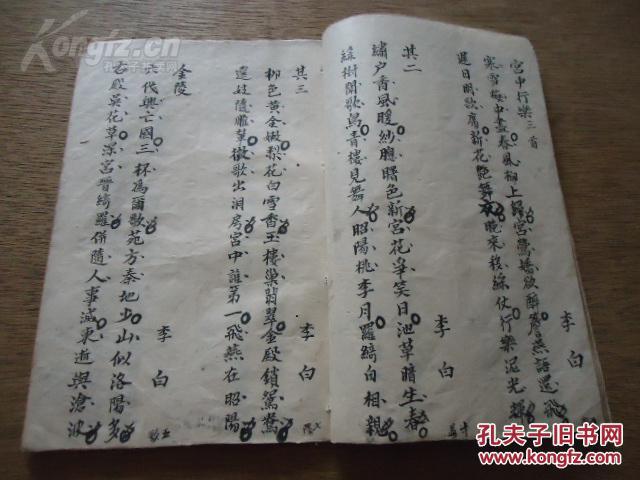 宮中行樂三首
李白
寒雪梅中盡春風柳上歸宮鶯嬌欲醉簷燕語還飛
遲日明歌席新花艷舞衣晚來移綵仗行樂泥光輝
其二
李白
繡户香風暖紗牕曙色新宮花爭笑日池草暗生春
綠樹聞歌鳥青樓見舞人昭陽桃李月羅綺自相親
其三
李白
柳色黃金嫩梨花白雪香玉樓巢翡翠金殿鎖鴛鴦
選妓隨雕輦徵歌出洞房宮中誰第一飛燕在昭陽
金陵
李白
六代興亡國三杯為爾歌苑方秦地少山似洛陽多
古殿吳花草深宮晉綺羅併隨人事滅東逝與滄波
Kongfz.com
孔夫子旧书网
KONGFZ.COM